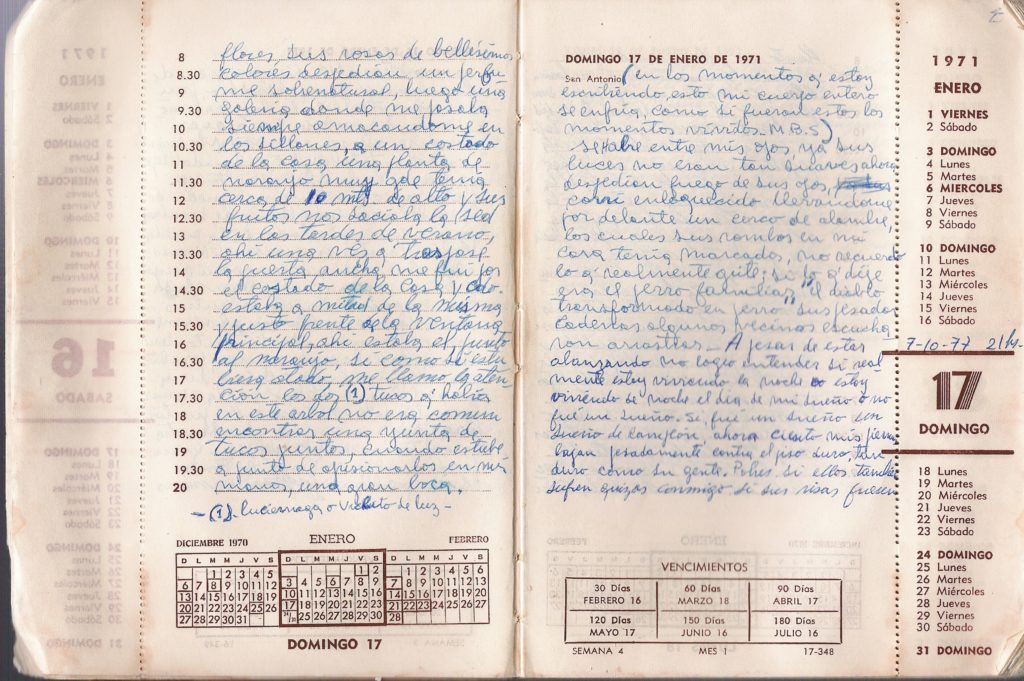 8 flores sus rosas de bellísimos
8.30 colores despedian un perfu
9 me sobrenatural, luego una
9.30 galeria donde me posaba
10 siempre amacandome en
10.30 los sillones, a un costado
11 de la casa una planta de
11.30 naranjo muy gde tenia
12 cerca de 10 mts de alto y sus
12.30 frutos nos saciaba la sed
13 en las tardes de verano,
13.30 ahi una vés q traspasé
14 la puerta ancha me fui por
14.30 el costado de la casa y cdo
15 estaba a mitad de la misma
15.30 y justo frente de la ventana
16 principal, ahi estaba el, junto
16.30 al naranjo, si como si estu
17 biera atado, me llamo la aten
17.30 cion los dos (1) tucos q' habia
18 en este arbol no era comun
18.30 encontrar una yunta de
19 tucos juntos, cuando estube
19.30 a punto de apisionarlos en mis
20 manos, una gran boca,
-(1)- Luciernaga o vichito de luz -
DICIEMBRE 1970 ENERO FEBRERO
D L M M J V S D L M M J V S D L M M J V S
1 2 3 4 5 1 2 1 2 3 4 5 6
6 7 8 9 10 11 12 3 4 5 6 7 8 9 7 8 9 10 11 12 13
13 14 15 16 17 18 19 10 11 12 13 14 15 16 14 15 16 17 18 19 20
20 21 22 23 24 25 26 17 18 19 20 21 22 23 21 22 23 24 25 26 27
27 28 29 30 31 24/31 25 26 27 28 29 30 28
DOMINGO 17
DOMINGO 17 DE ENERO DE 1971
San Antonio (en los momentos q' estoy
escribiendo esto mi cuerpo entero
se enfria, como si fueran estos los
momentos vividos. M.B.S)
se abre entre mis ojos ya sus
luces no eran tan suaves ahora
despedian fuego de sus ojos,
corri enloquecido llevandome
por delante un cerco de alambre,
los cuales sus rombos en mi
cara tenia marcados, no recuerdo
lo q' realmente grite: si lo q' dije
era el perro familiar, "el diablo
transformado en perro" sus pesadas
cadenas algunos vecinos escucha
ron arrastrar. A pesar de estar
alcanzando no logro entender si real
mente estoy viviendo la noche o estoy
viviendo de noche el dia de mi sueño o no
fué un sueño. Si fué un sueño un
sueño de campeón, ahora siento mis piernas
bajan pesadamente contra el piso duro, tan
duro como su gente. Pobres si ellos tambien
sufren quizas conmigo si sus risas fuesen
VENCIMIENTOS
30 Días 60 Días 90 Días
FEBRERO 16 MARZO 18 ABRIL 17
120 Días 150 Días 180 Días
MAYO 17 JUNIO 16 JULIO 16
SEMANA 4 MES 1 17-348
1971
ENERO
1 VIERNES
2 Sábado
3 DOMINGO
4 Lunes
5 Martes
6 MIERCOLES
7 Jueves
8 Viernes
9 Sábado
10 DOMINGO
11 Lunes
12 Martes
13 Miércoles
14 Jueves
15 Viernes
16 Sábado
7-10-77 21hs.
17
DOMINGO
18 Lunes
19 Martes
20 Miércoles
21 Jueves
22 Viernes
23 Sábado
24 DOMINGO
25 Lunes
26 Martes
27 Miércoles
28 Jueves
29 Viernes
30 Sábado
31 DOMINGO